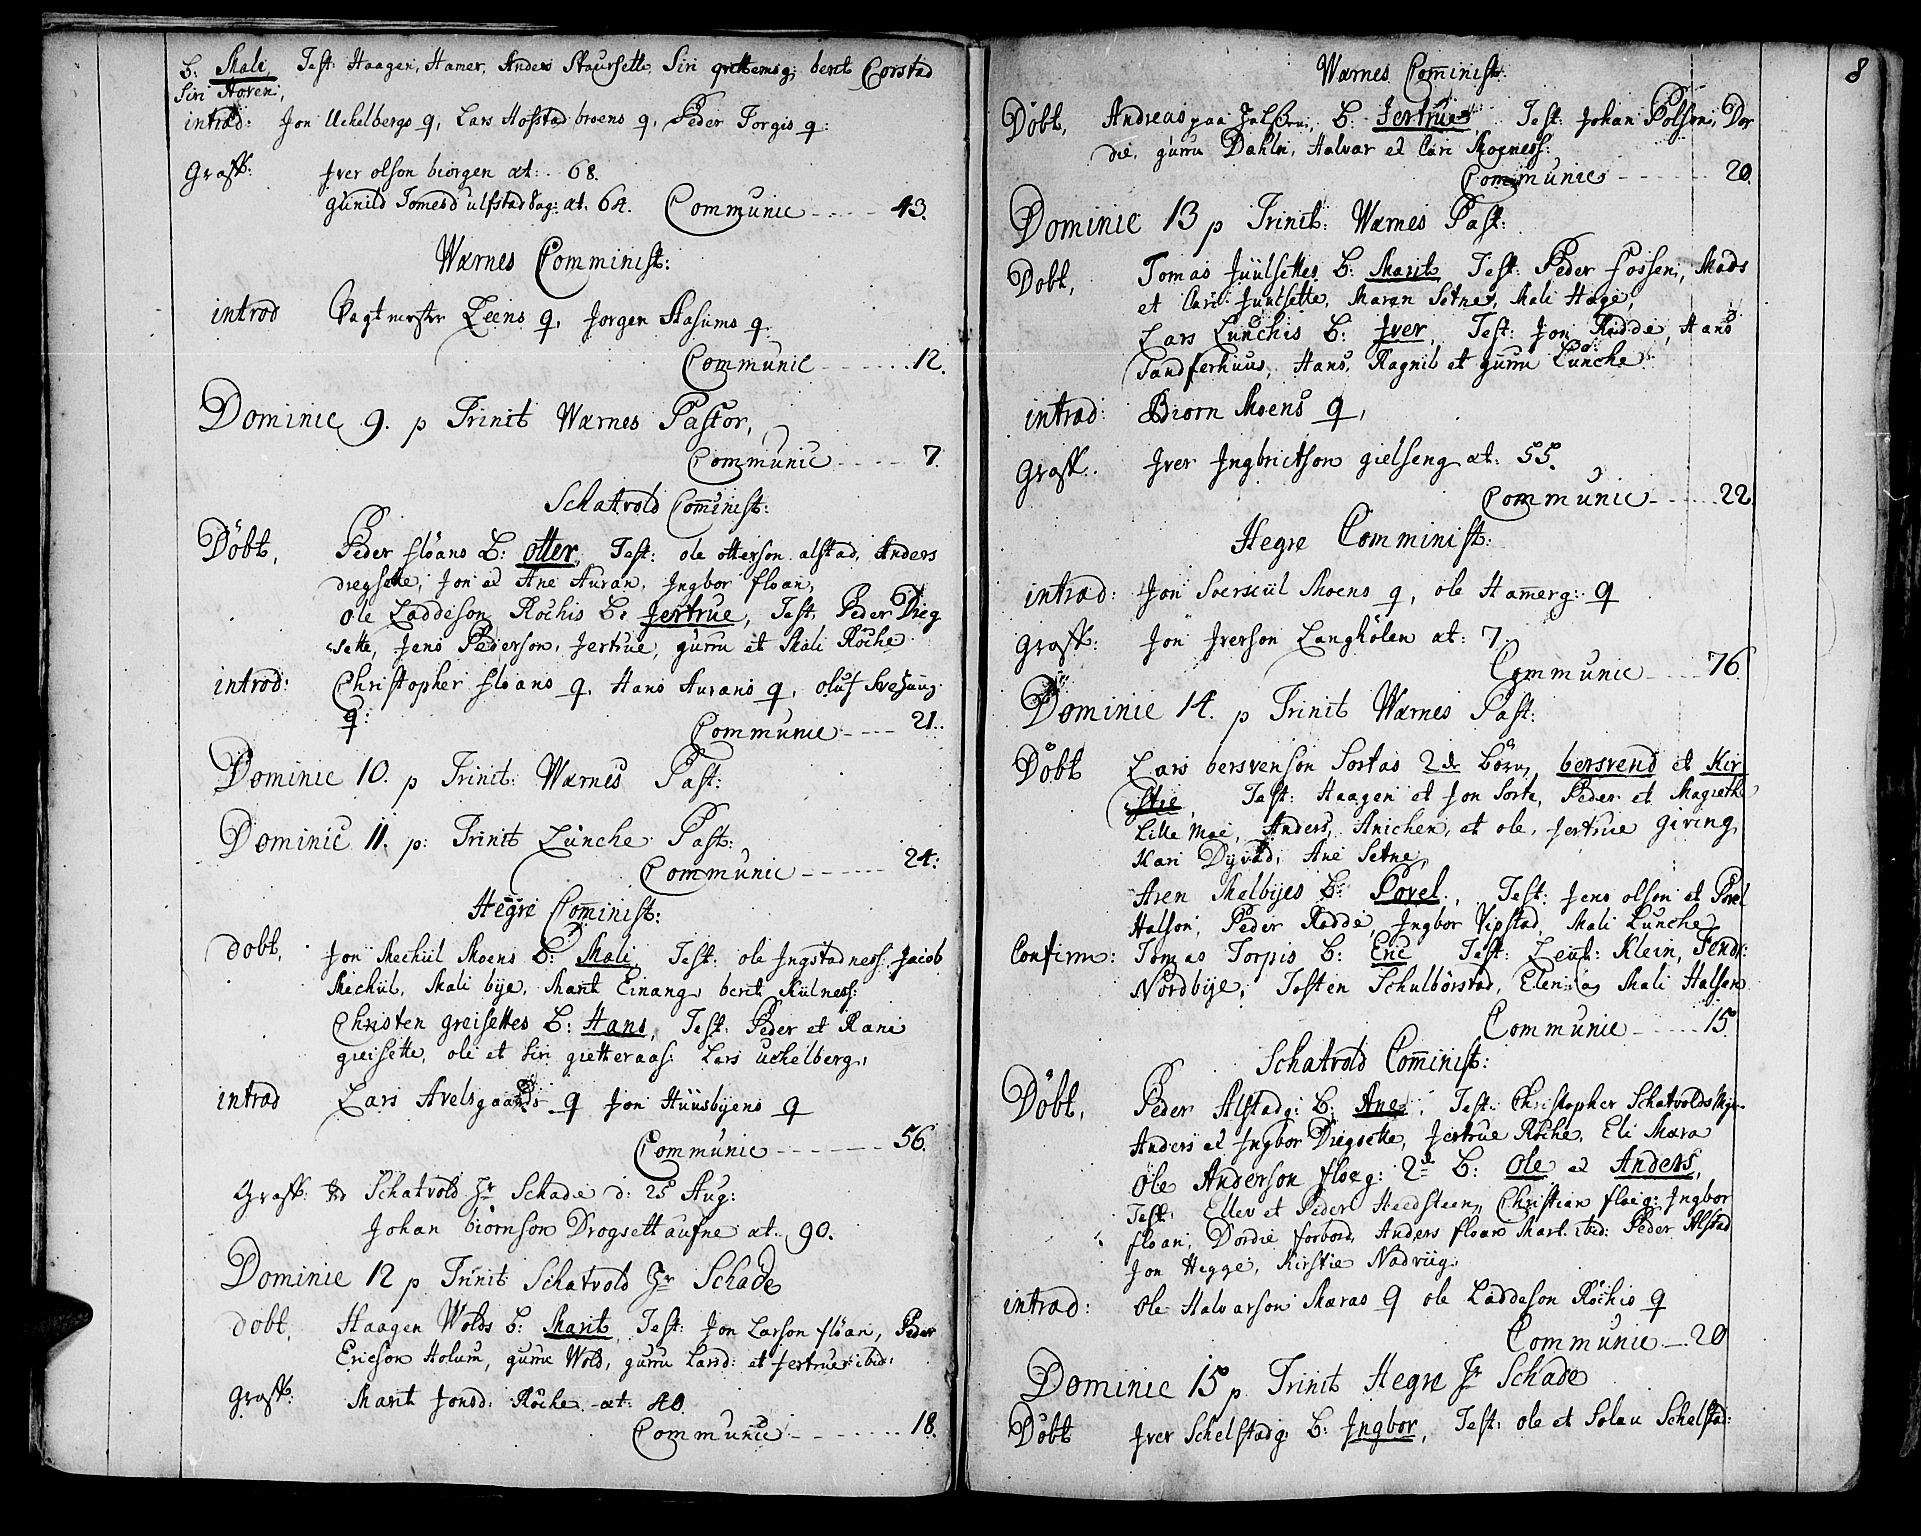 B: Mali, Test: Haagen, Hamer, Anders Staursette, Siri grittemsg, berit Corstad
Siri Horen,
introd: Jon Uchelbergs q, Lars Hofstad broens q, Peder Torgis q:
Grafk: Iver olson biörgen æt: 68.
gunild Tomesd ulfstad dag: æt. 64. Communic ---- 43.
Wærnes Comminist:
introd Vagt mester Leens q, Jorgen Stasums q.
Communic ------ 12.
Dominic 9. p Trinit Wærnes Pastor,
Communic ---- 7.
Schatvold Cominist:
Döbt, Peder flöans B: otter, Test: ole otterson alstad, Anders
diegsette, Jon et Ane Auran, Ingbor floan,
Ole Laddeson Röchis B: Jertrue, Test: Peder Dieg
sette, Jens Pederson, Jertrue, gurru et Mali Röche
introd: Christopher flöans q, Hans Aurans q, oluf
q: Communic ---- 21.
Dominic 10. p Trinit: Wærnes Past:
Dominic 11. p: Trinit Lünche Past:
Communic ------ 24:
Hegre Cominist:
dobt, Jon Mechiil Moens B: Mali, Test: ole Ingstadness, Jacob
Mechiil, Mali bije, Marit Einang, berit Kilness:
Christen greisettes B: Hans, Test: Peder et Rani
greisette, ole et Siri gietteraas: Lars uchelberg,
introd Lars Avelsgaards q Jon Huusbyens q
Communic ------- 56.
Grafk: Schatvold Hr Schade d: 25 Aug:
Johan biörnson Drogsett aufne æt: 90.
Dominic 12 p Trinit Schatvold Hr Schade
dobt, Haagen Wolds B: Marit, Test: Jon Larson flöan, Peder
Ericson Holum, gurru Wold, gurru Larsd: et Jertrue ibid:
Grafk: Marit Jonsd: Röche æt: 40
Communic ------ 18.
8
Wærnes Cominist:
Döbt, Andreas paa B: Jertrue, Test: Johan Polson, Dor
die, gurru Dahlen, Halvar et Cari Moeness:
Communic ------ 20.
Dominic 13 p Trinit: Wærnes Past:
Dobt, Tomas Juulsettes B: Marit, Test: Peder fossen, Mads
et Cari Juulsette, Maren Setne, Mali Hage,
Lars Lünchis B: Iver, Test: Jon Rödde, Hans
Sandferhuus, Hans, Ragnil et gurru Lünche.
introd: Biorn Moens q,
Grafk: Iver Ingbrictson gielseng æt: 55.
Communic ----- 22.
Hegre Comminist:
introd: Jon Moens q, ole Hamerg: q
Grafk: Jon Iverson Langhölen æt: 7.
Communic ---- 76.
Dominic 14. p Trinit Wærnes Past:
Döbt Lars bersvenson Sortas 2de börn, bersvend et Kir
stie, Test: Haagen et Jon Sorte, Peder et Magrethe
Lille moe, Anders, Anichen, et ole, Jertrue giving
Kari Dyvad, Ane Setne,
Aren Melbyes B: Povel, Test: Jens olson et Povel
Halson, Peder Rødde, Ingbor Vipstad, Mali Lünche,
Confirm: Tomas Torpis B: Eric Test: Leut: Klein, Fendr:
Nordbye, Tosten Schulbörstad, Elen og Mali Halsen
Communic ----- 15
Schatvold Cominist:
Döbt, Peder Alstadg: B: Ane, Test: Christopher Schatvolds
Anders et Ingbor Diegsette, Jertrue Röche, Eli Mæra
Ole Anderson floeg: 2de B: Ole et Anders,
Test: Ellev et Peder Heedsteen, Christian floeg: Ingbor
floan, Dordie forbord, Anders floan Marit ibid: Peder Alstad
Jon Hegge, Kirstie Nadviig.
introd: Ole Halvarson Mæras q ole Laddeson Röchis q
Communic --- 20
Dominic 15 p Trinit Hegre Hr Schade
Döbt Iver Schelstadg B: Ingbor, Test: ole et Solau Schelstad: